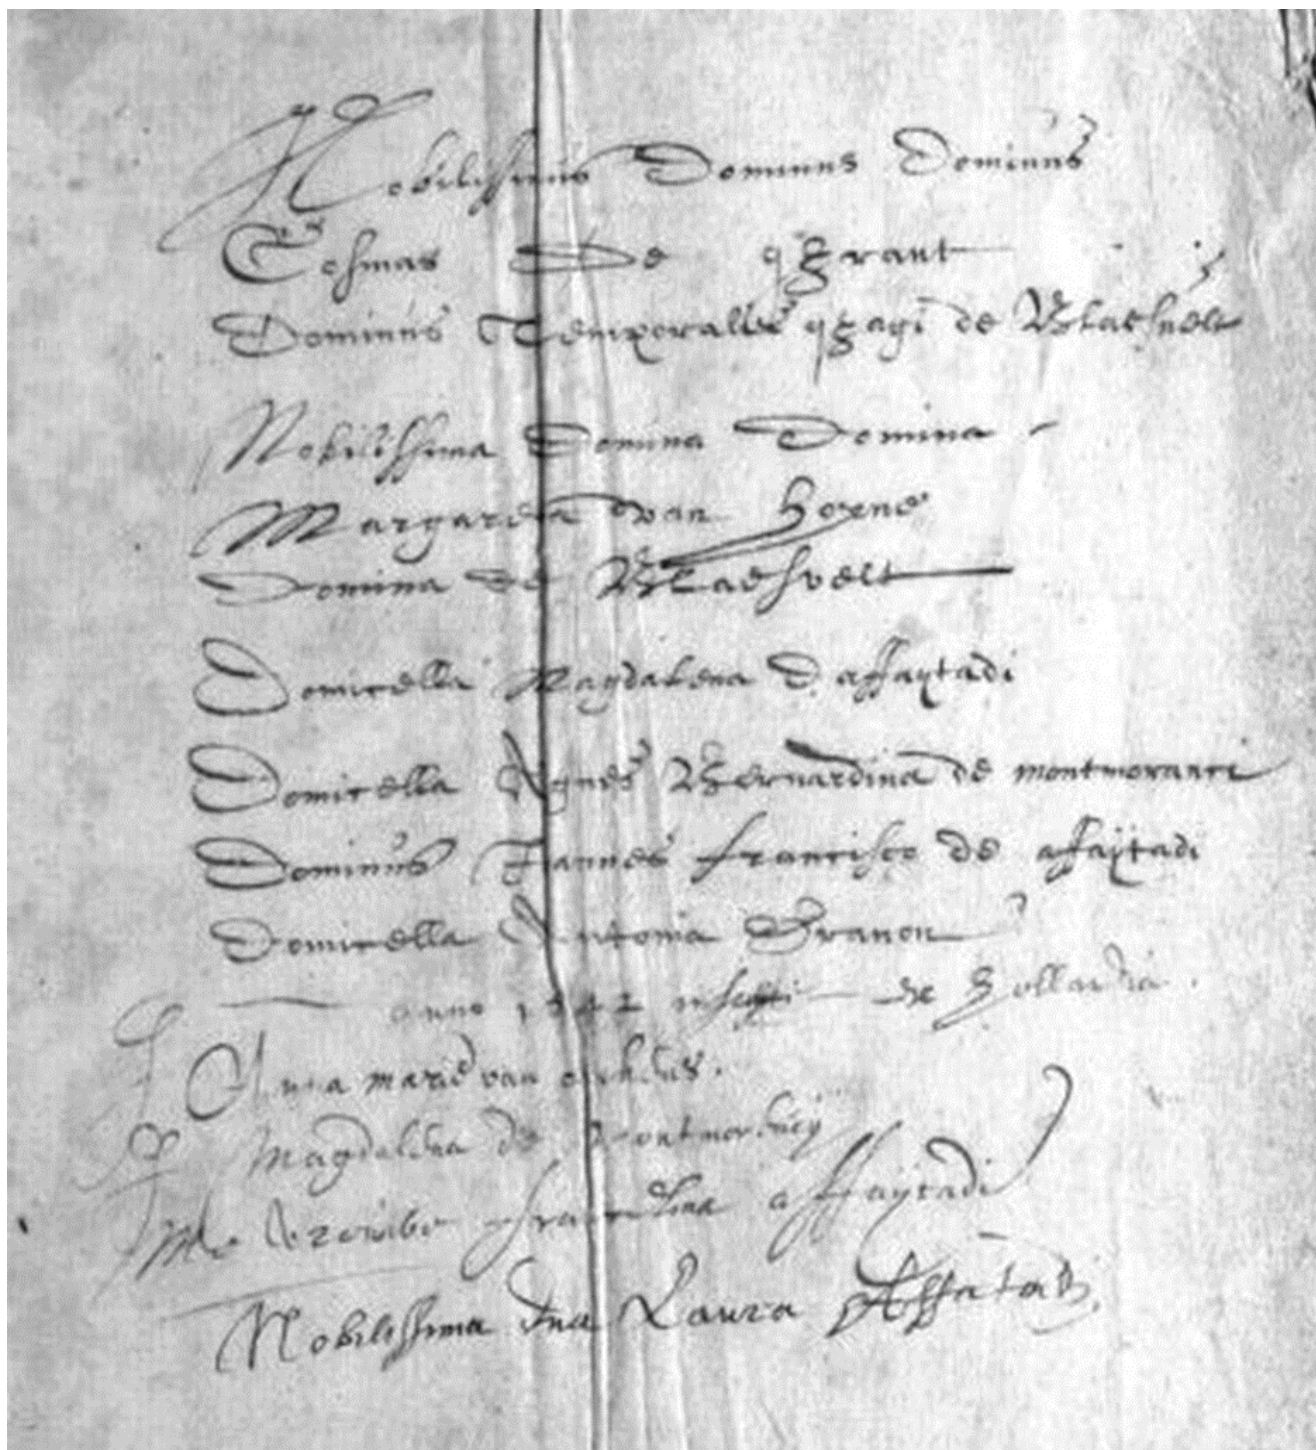 Nobilissimus Dominus Dominus
Cosmas De Grant
Dominus Temporalis pagi de Blaesvelt
Nobilissima Domina Domina
Margareta van Horne
Domina de Blaesvelt
Domicella Magdalena D affaytadi
Domicella Agnes Bernardina de montmoranci
Dominus Joannes francisco de affaitadi
Domicella Antonia
anno de Hollandia.
Anna marie van
Magdalena de Montmorency
affaytadi
Nobilissima Dna Laura Affatadi